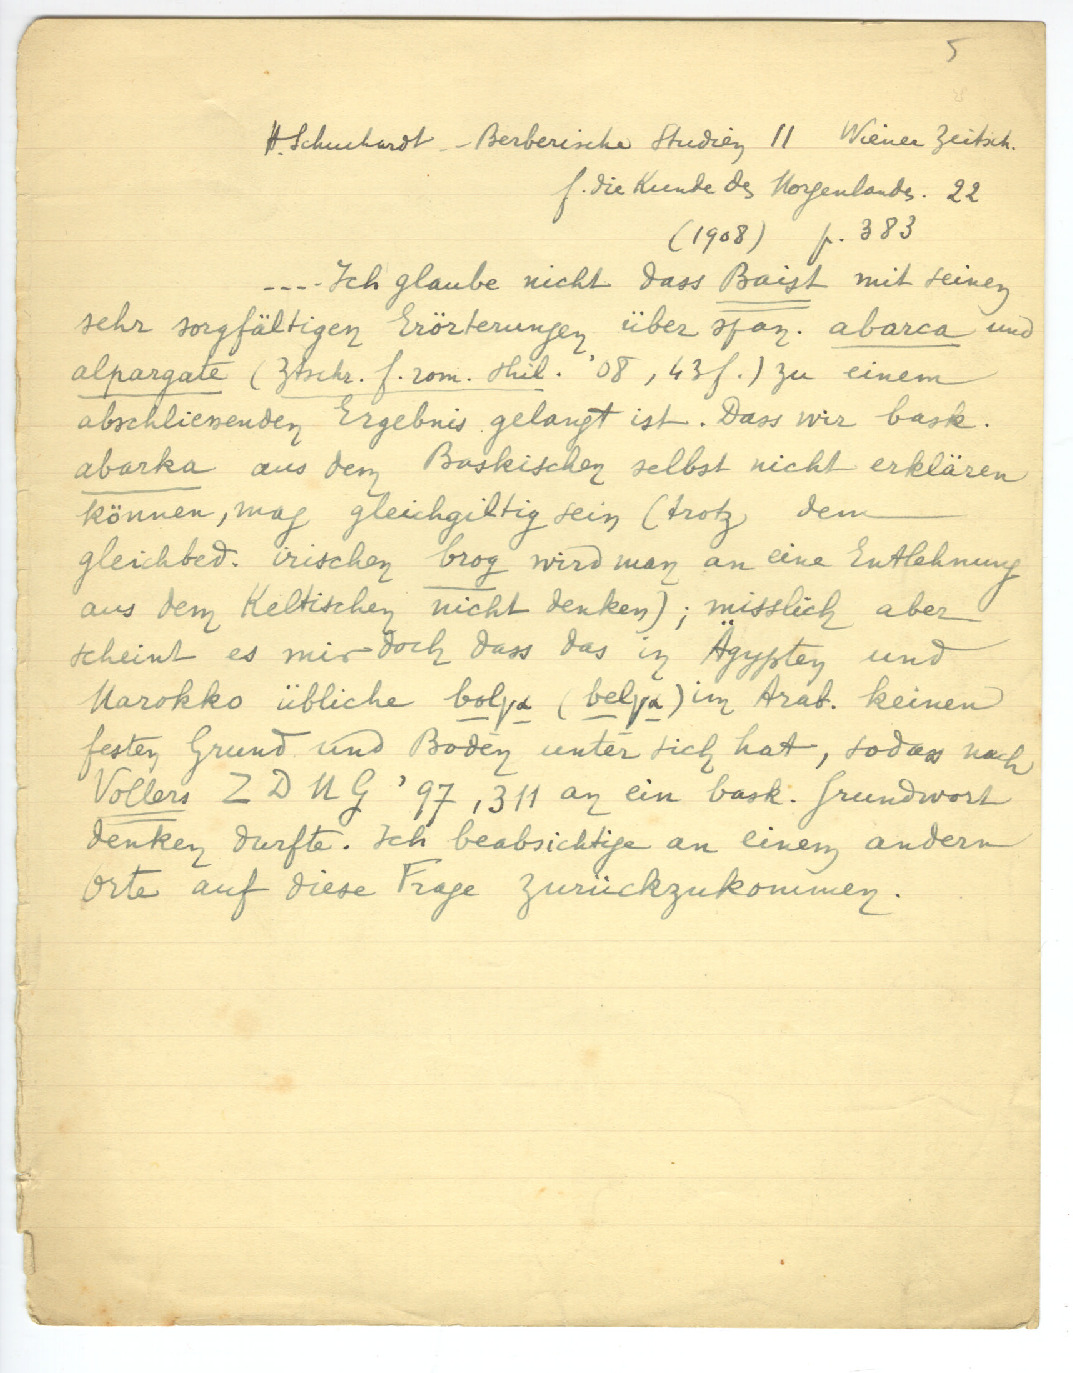 5
H. Schuchardt - Berberische Studien II Wiener Zeitsch.
f. die Kunde des Morgenlandes. 22
(1908) p. 383
---- Ich glaube nicht dass Baist mit seinen
sehr sorgfältigen Erörterungen über span. abarca und
alpargate (Ztschr. f. rom. Phil. '08, 43f.) zu einem
abschliessenden Ergebnis gelangt ist. Dass wir bask.
abarka aus dem Baskischen selbst nicht erklären
können, mag gleichgiltig sein (trotz dem
gleichbed. irischen brog wird man an eine Entlehnung
aus dem Keltischen nicht denken); misslich aber
scheint es mir doch dass das in Ägypten und
Marokko übliche bolγa (belγa) im Arab. keinen
festen Grund und Boden unter sich hat, sodass nach
Vollers Z D M G '97, 311 an ein bask. Grundwort
denken durfte. Ich beabsichtige an einem andern
Orte auf diese Frage zurückzukommen.